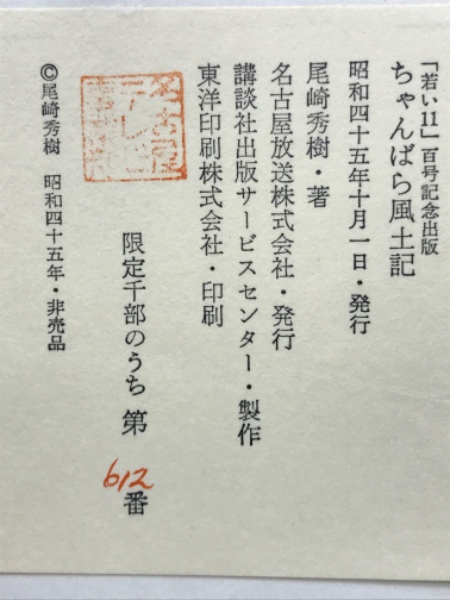 「若い11」百号記念出版
ちゃんばら風土記
昭和四十五年十月一日・発行
尾崎秀樹・著
名古屋放送株式会社・発行
講談社出版サービスセンター・製作
東洋印刷株式会社・印刷
名古屋
限定千部のうち 第 612 番
©尾崎秀樹 昭和四十五年・非売品